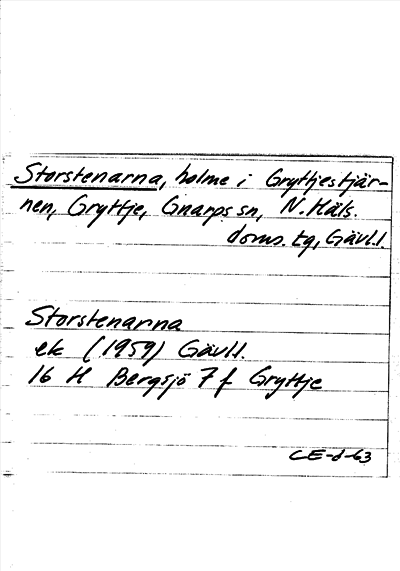 Storstenarna, holme i Gryttjestjär-
nen, Gryttje, Gnarps sn, N. Häls.
doms. tg, Gävl.l.
Storstenarna
ek (1959) Gävl.l.
16 H Bergsjö 7 f Gryttje
CE-d-63